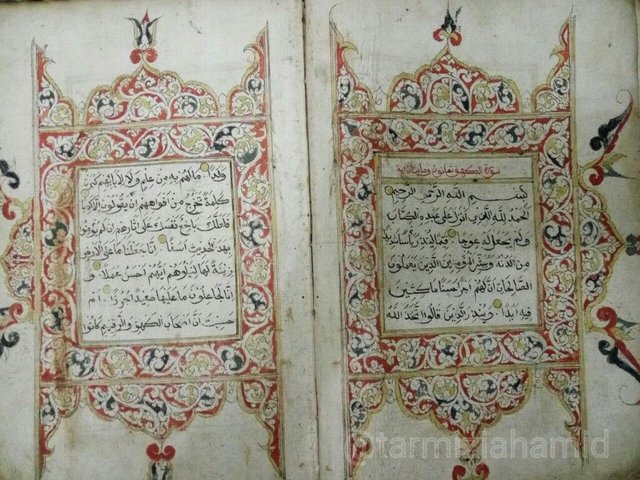 سورة الكهف
بسم الله الرحمن الرحيم
الحمد لله الذي انزل على عبده الكتاب
ولم يجعل له عوجا قيما لينذر بأسا شديدا
من لدنه ويبشر المؤمنين الذين يعملون
الصالحات ان لهم اجرا حسنا ماكثين
فيه ابدا وينذر الذين قالوا اتخذ الله
ولدا ما لهم به من علم ولا لابائهم كبرت
كلمة تخرج من افواههم ان يقولون الا كذبا
فلعلك باخع نفسك على اثارهم ان لم يؤمنوا
بهذا الحديث اسفا انا جعلنا ما على الارض
زينة لها لنبلوهم ايهم احسن عملا و
انا لجاعلون ما عليها صعيدا جرزا ام
حسبت ان اصحاب الكهف والرقيم كانوا
@tarmiziahamid